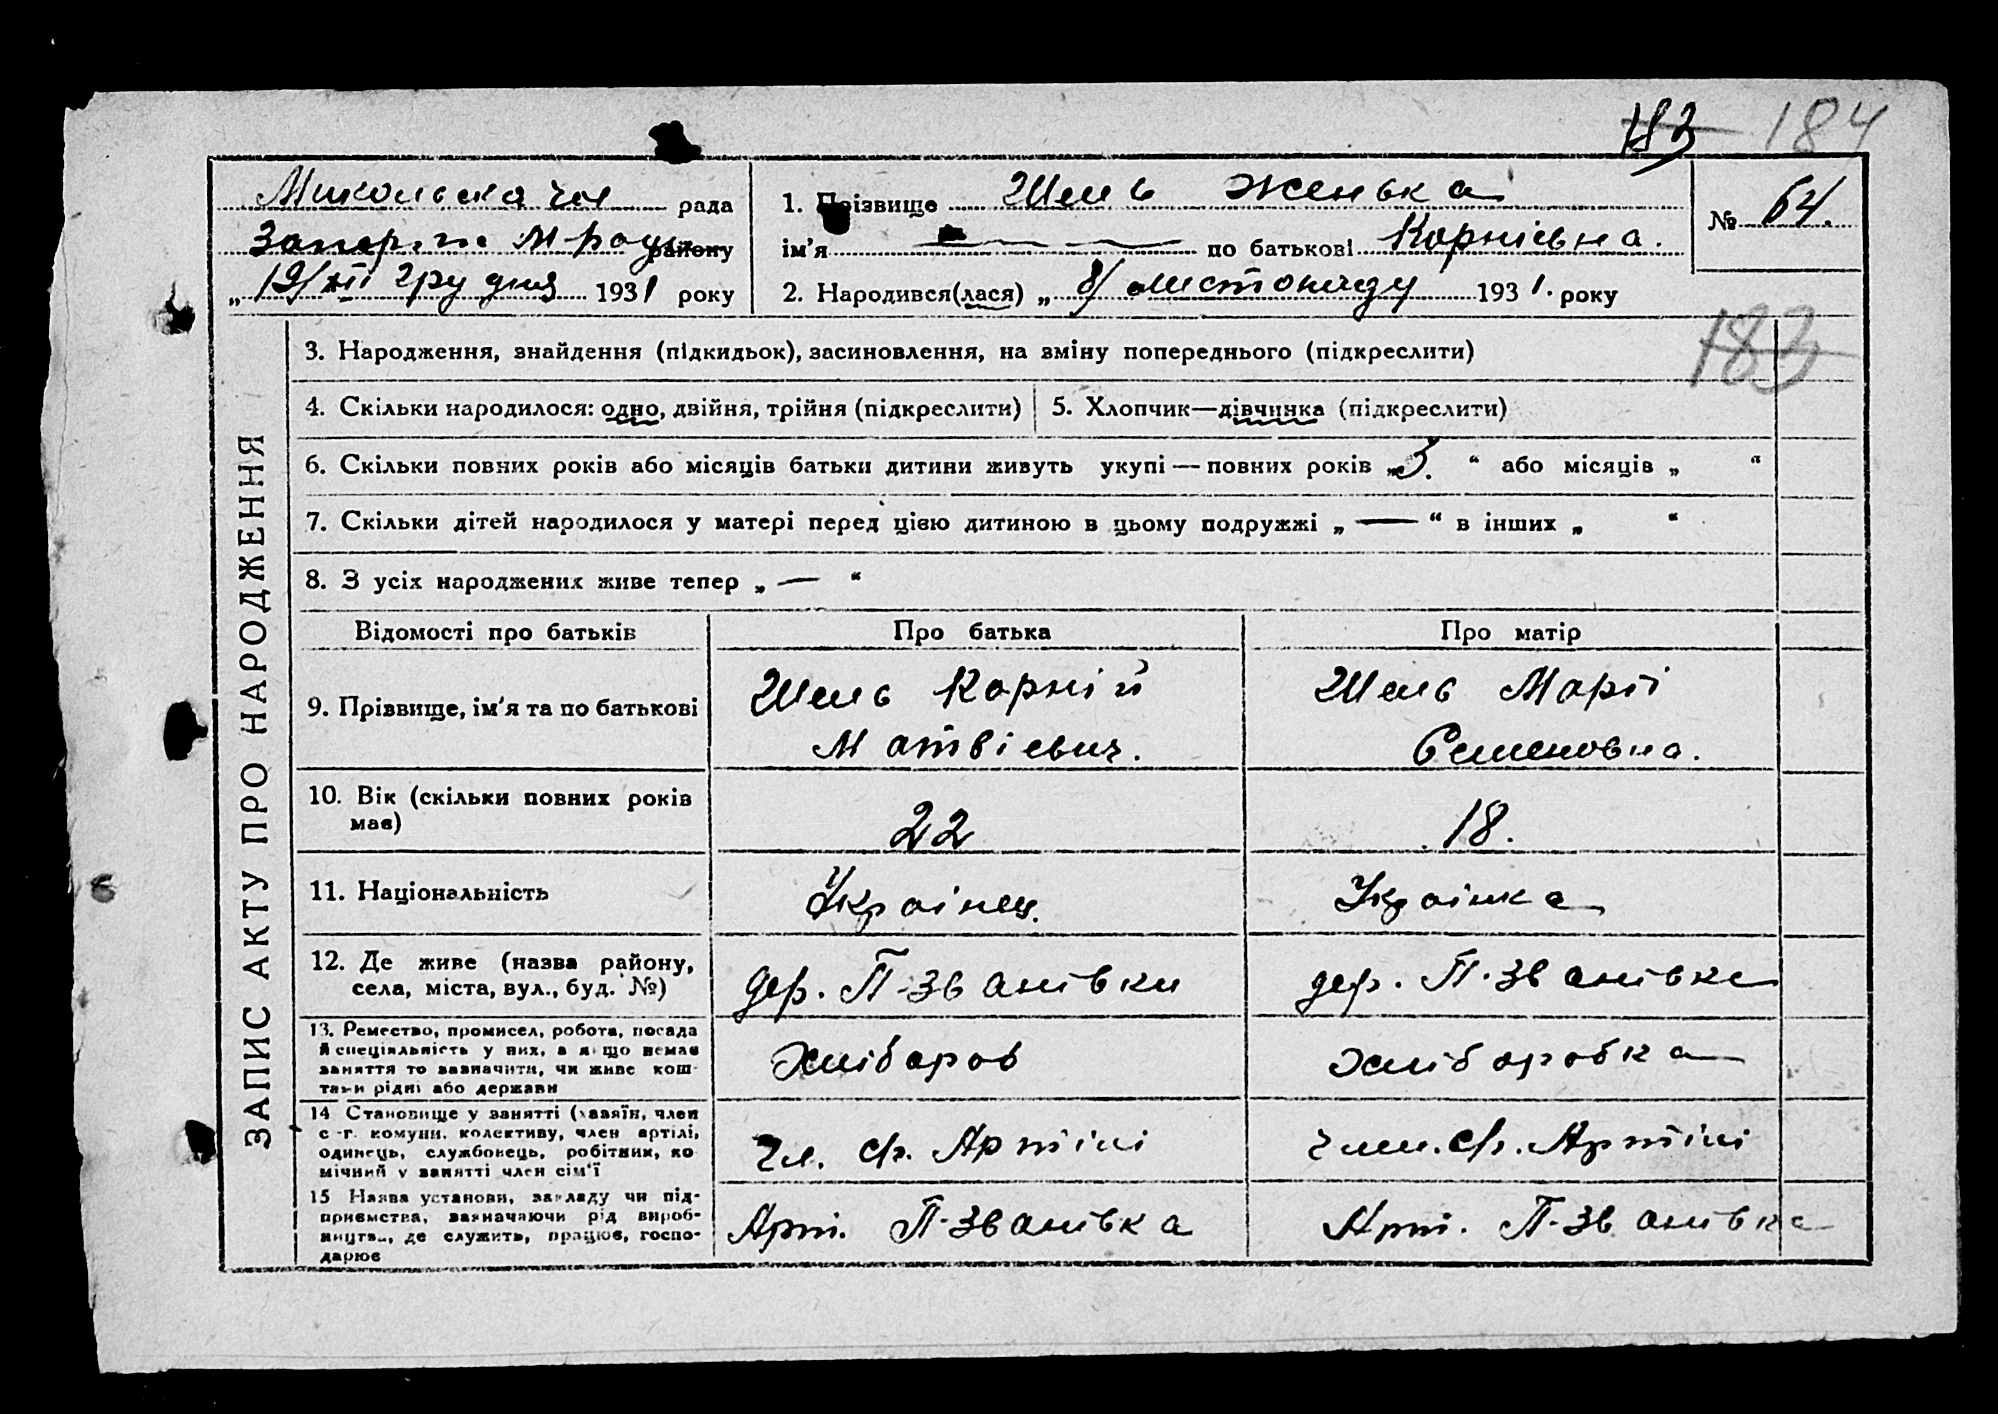 183 184
Микольська рада
району
19/XII грудня 1931 року
1. Прізвище Шель Женька
ім'я — — — по батькові Корніевна.
2. Народився(лася) „ 8/ листопаду 1931. року
№ 64.
183
ЗАПИС АКТУ ПРО НАРОДЖЕННЯ
3. Народження, знайдення (підкидьок), засиновлення, на зміну попереднього (підкреслити)
4. Скільки народилося: одно, двійня, трійня (підкреслити)
5. Хлопчик—дівчинка (підкреслити)
6. Скільки повних років або місяців батьки дитини живуть укупі — повних років „3. “ або місяців „ “
7. Скільки дітей народилося у матері перед цією дитиною в цьому подружжі „ — “ в інших „ “
8. З усіх народжених живе тепер „ — “
Відомості про батьків Про батька Про матір
9. Прізвище, ім'я та по батькові
Шель Корній
Матвіевич.
Шель Марії
Семеновна.
10. Вік (скільки повних років
має)
22
18.
11. Національність
Украінец.
Украінка
12. Де живе (назва району,
села, міста, вул., буд. №)
дер. П-Званівки
дер. П-Званівка
13. Ремество, промисел, робота, посада
й спеціяльність у них, а якщо немає
заняття то зазначити, чи живе кош-
тами рідні або держави
Хлібороб
Хліборобка
14 Становище у занятті (хазяїн, член
с-г. комуни, колективу, член артілі,
одинець, службовець, робітник, по
мічний у занятті член сім'ї
Чл. сг. Артілі
член. сг. Артілі
15 Назва установи, закладу чи під-
приємства, зазначаючи рід вироб-
ництва, де служить, працює, госпо-
дарює
Арт. П-Званівка
Арт. П-Званівка